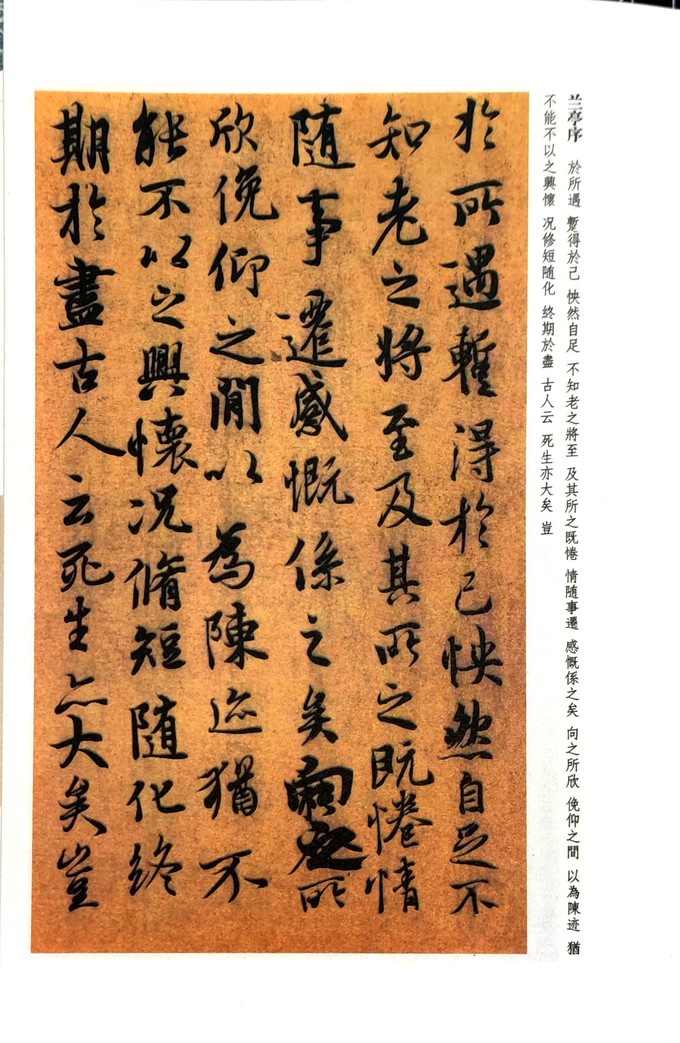 兰亭序 於所遇 暫得於己 怏然自足 不知老之將至 及其所之既惓 情隨事遷 感慨係之矣 向之所欣 俛仰之間 以為陳迹 猶
不能不以之興懷 况修短隨化 終期於盡 古人云 死生亦大矣 豈
於所遇暫得於己怏然自足不
知老之將至及其所之既惓情
隨事遷感慨係之矣向之所
欣俛仰之閒以為陳迹猶不
能不以之興懷况脩短隨化終
期於盡古人云死生亦大矣豈